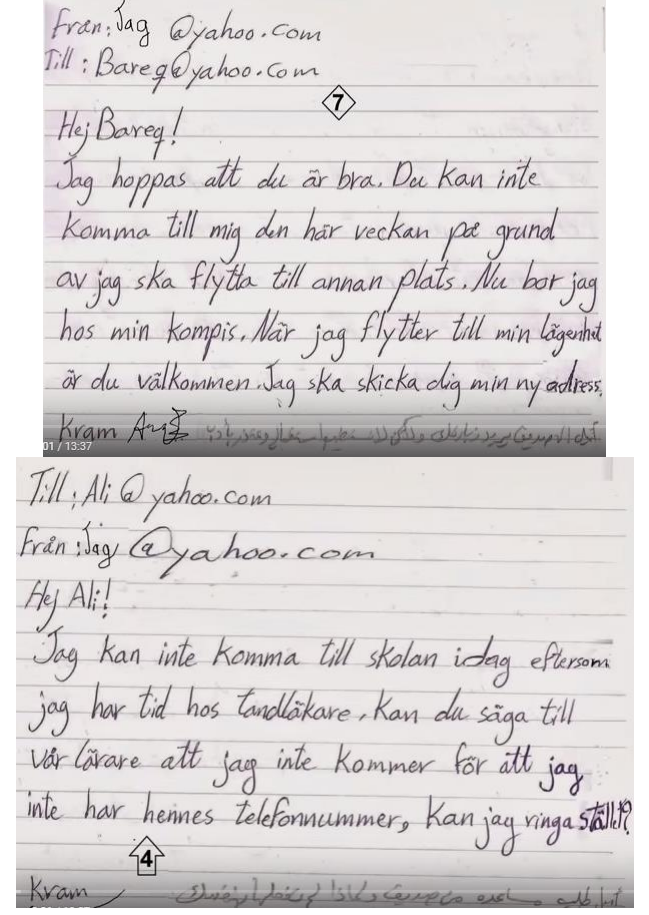 Från: Jag @yahoo.com
Till: Bareq@yahoo.com
7
Hej Bareq!
Jag hoppas att du är bra. Du kan inte
komma till mig den här veckan på grund
av jag ska flytta till annan plats. Nu bor jag
hos min kompis. När jag flytter till min lägenhet
är du välkommen. Jag ska skicka dig min ny adress.
Kram
01 / 13:37
Till: Ali@yahoo.com
Från: Jag @yahoo.com
Hej Ali!
Jag kan inte komma till skolan idag eftersom
jag har tid hos tandläkare, kan du säga till
vår lärare att jag inte kommer för att jag
inte har hennes telefonnummer, kan jag ringa stället?
4
Kram